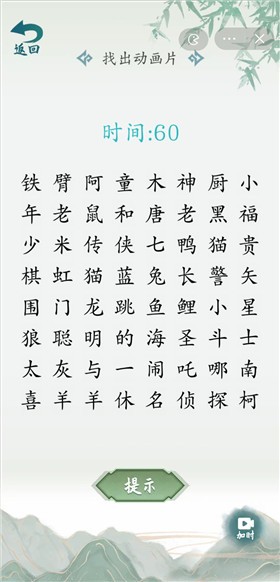 返回
找出动画片
时间:60
铁臂阿童木神厨小
年老鼠和唐老黑福
少米传侠七鸭猫贵
棋虹猫蓝兔长警矢
围门龙跳鱼鲤小星
狼聪明的海圣斗士
太灰与一闹吒哪南
喜羊羊休名侦探柯
提示
加时